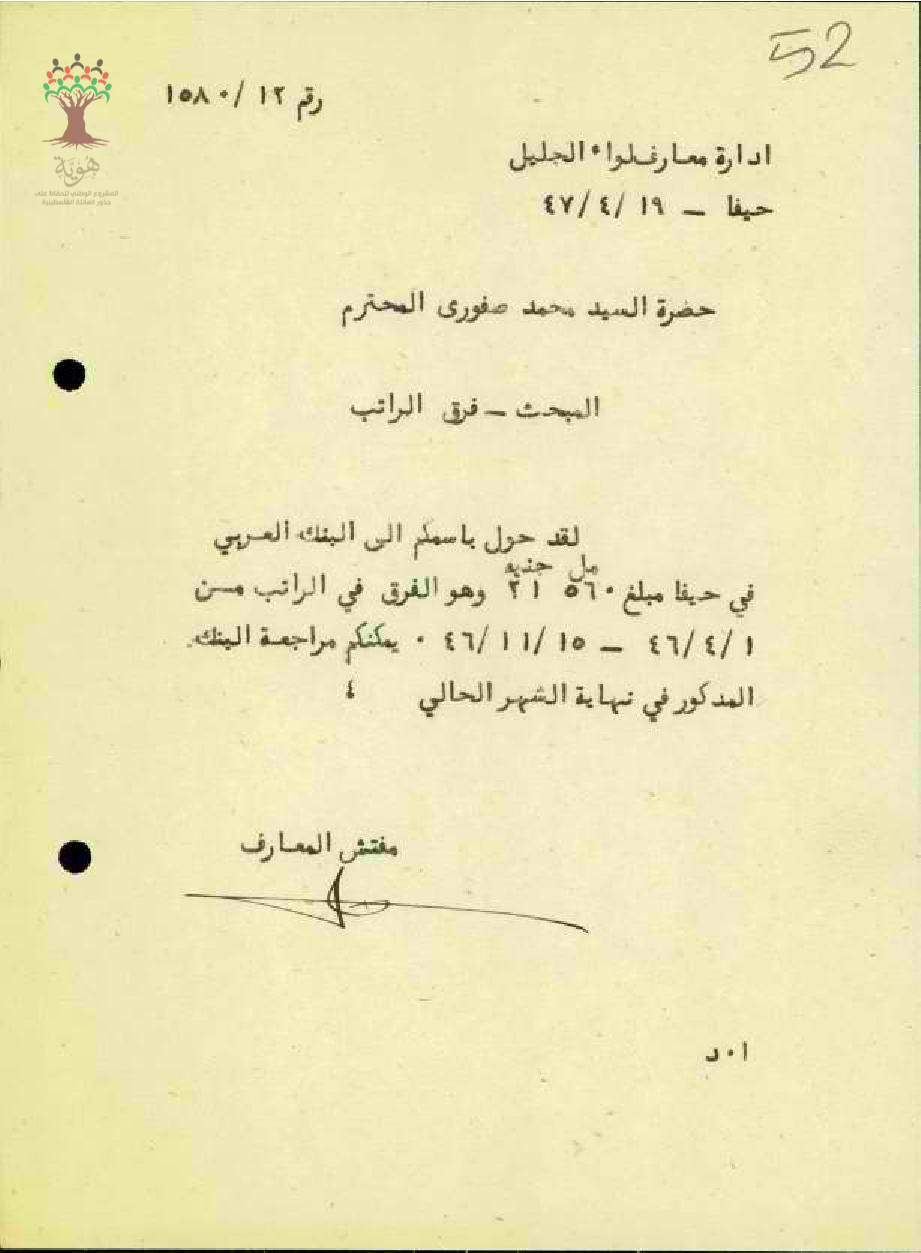 52
رقم ١٢ /١٥٨٠
ادارة معارف لواء الجليل
حيفا – ١٩ /٤ /٤٧
حضرة السيد محمد صفورى المحترم
المبحث – فرق الراتب
لقد حول باسمكم الى البنك العربي
مل جنيه
في حيفا مبلغ ٥٦٠ ٢١ وهو الفرق في الراتب مــن
٤٦/٤/١ – ٤٦/١١/١٥ ٠ يمكنكم مراجعة البنك
المذكور في نهاية الشهر الحالي ٤
مفتش المعارف
ا ٠ د
هُويَّة
المشروع الوطني للحفاظ على
جذور العائلة الفلسطينية